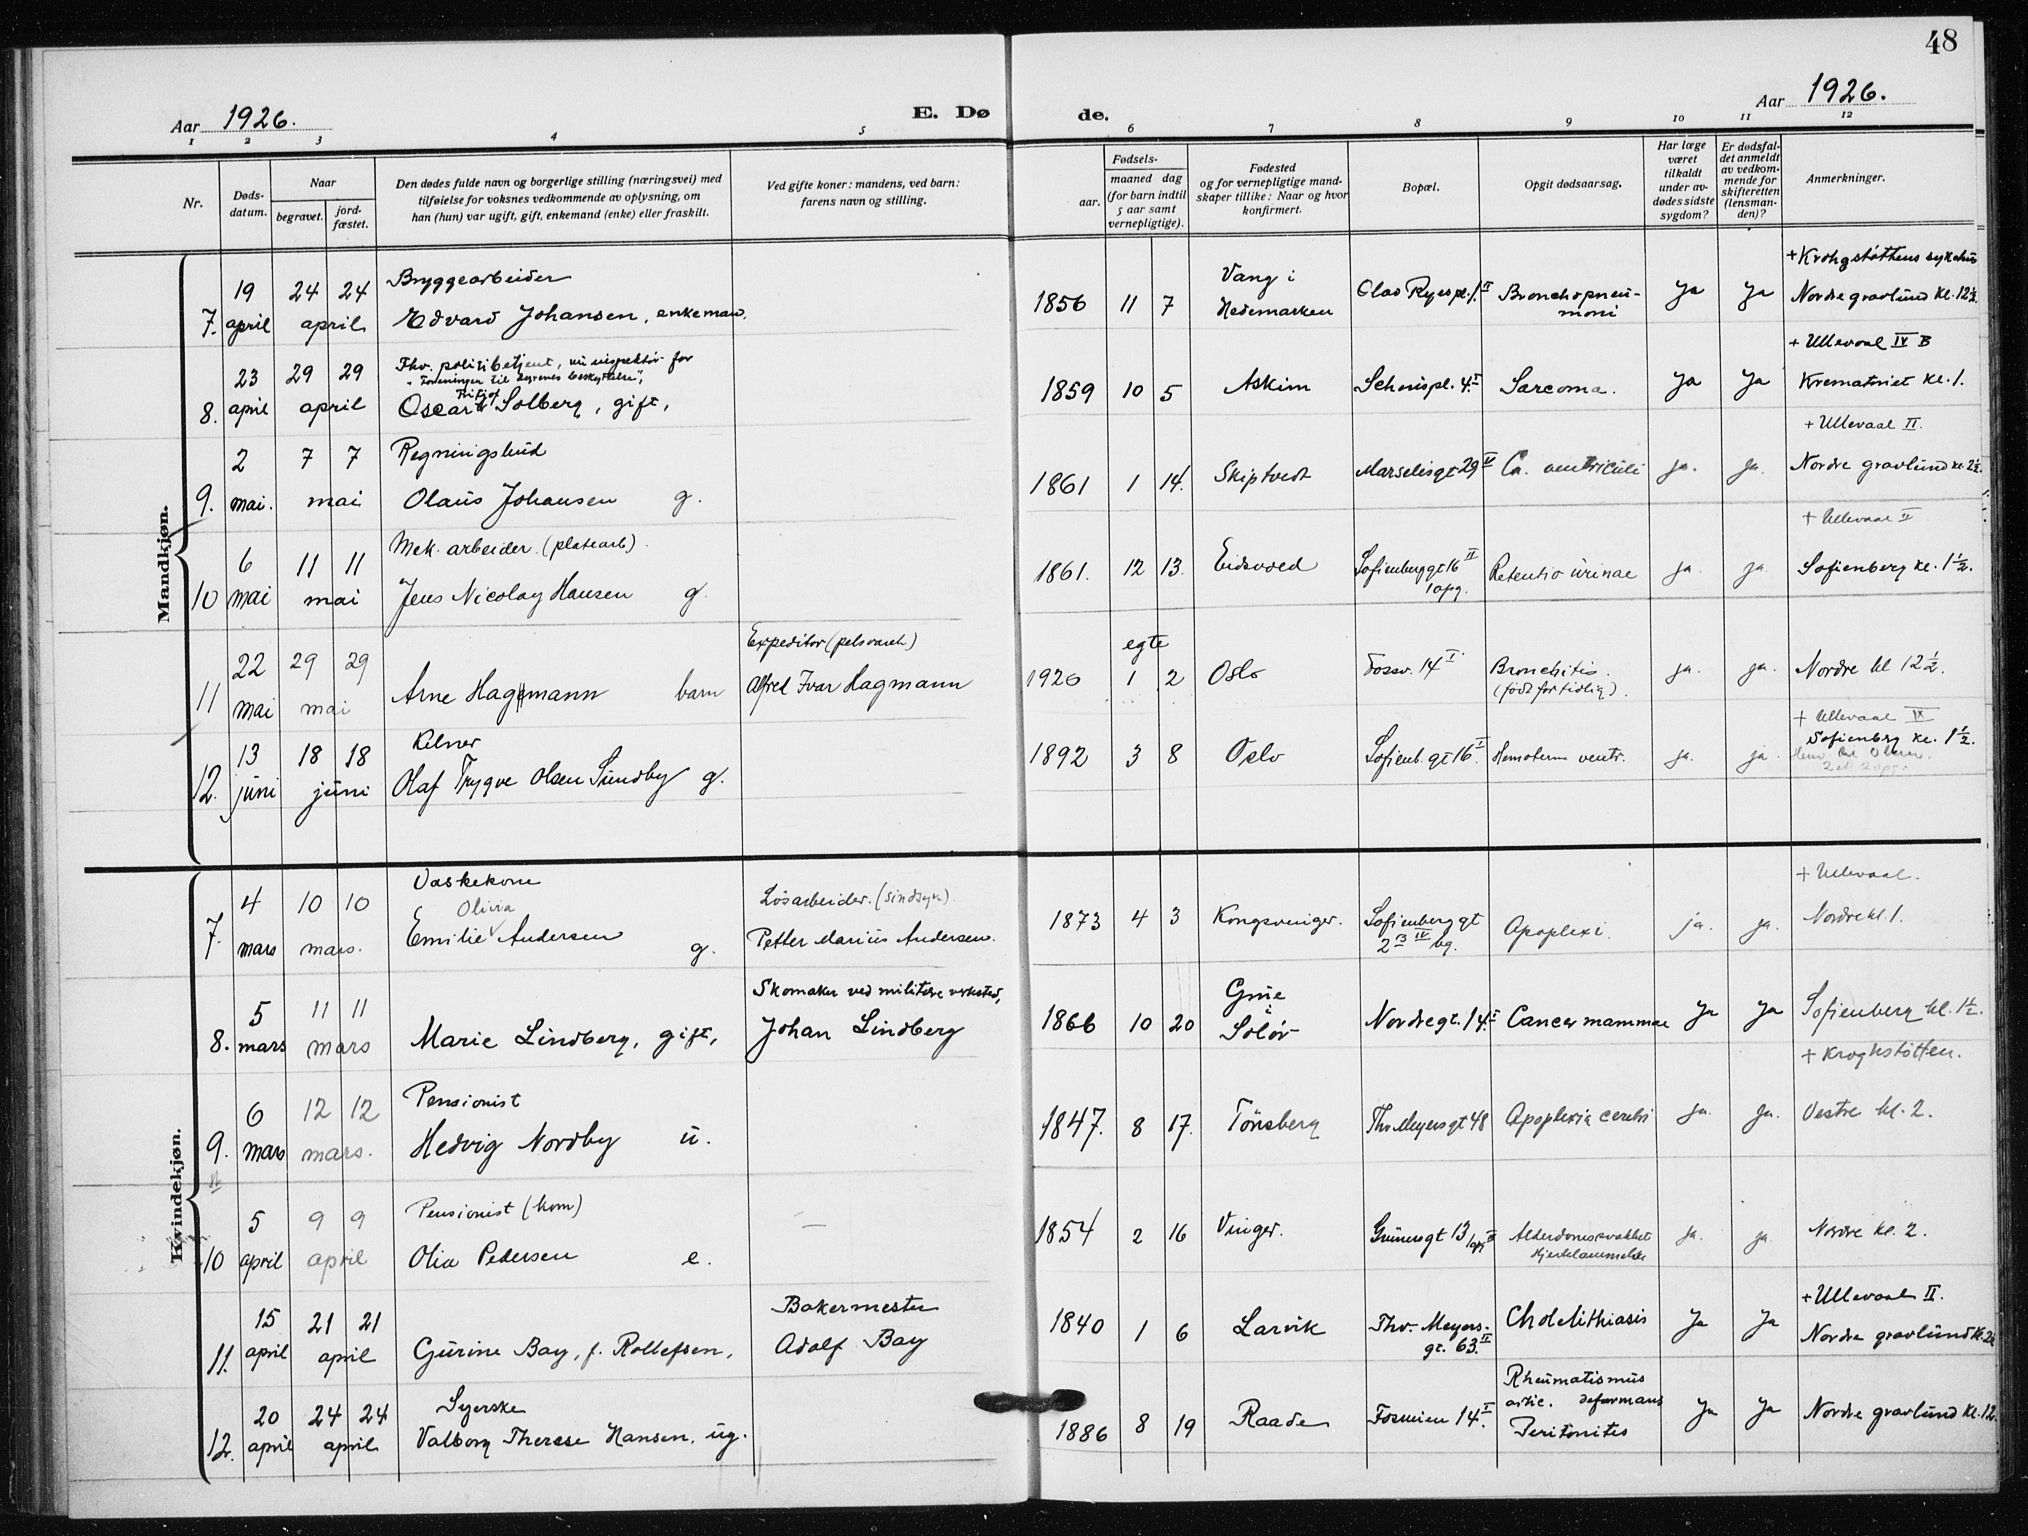 48
Aar 1926. E. Dø de. Aar 1926.
1 2 3 4 5 6 7 8 9 10 11 12
Nr.
Døds-
datum.
Naar
begravet.
jord-
fæstet.
Den dødes fulde navn og borgerlige stilling (næringsvei) med
tilføielse for voksnes vedkommende av oplysning, om
han (hun) var ugift, gift, enkemand (enke) eller fraskilt.
Ved gifte koner: mandens, ved barn:
farens navn og stilling.
Fødsels-
aar.
maaned dag
(for barn indtil
5 aar samt
vernepligtige).
Fødested
og for vernepligtige mand-
skaper tillike: Naar og hvor
konfirmert.
Bopæl.
Opgit dødsaarsag.
Har læge
været
tilkaldt
under av-
dødes sidste
sygdom?
Er dødsfal-
det anmeldt
av vedkom-
mende for
skifteretten
(lensman-
den)?
Anmerkninger.
Mandkjøn.
7. 19 april 24 24 april
Bryggearbeider
Edvard Johansen, enkeman.
1856 11 7 Vang i
Hedemarken
Olav Ryespl. 1 II
Bronchopneu-
moni
Ja Ja
+ Krohgstøttens sykehus
Nordre gravlund kl. 12½.
8. 23 april 29 29 april
Fhv. politibetjent, nu inspektør for
"Foreningen til dyrenes beskyttelse",
Fritjof
Oscar Solberg, gift,
1859 10 5 Askim Schouspl. 4 I Sarcoma. Ja Ja
+ Ullevaal IV B
Krematoriet kl. 1.
9. 2 mai. 7 7 mai
Regningsbud
Olaus Johansen g.
1861 1 14. Skiptvedt Marselisgt 29 IV Ca. ventriculi ja. ja.
+ Ullevaal II.
Nordre gravlund kl. 2½.
10 6 mai 11 11 mai
Mek. arbeider (platearb).
Jens Nicolay Hansen g.
1861. 12 13. Eidsvold Sofienberggt 16 II
1 opg.
Retentio urinae ja. ja.
+ Ullevaal II
Sofienberg kl. 1½.
11 22 mai 29 29 mai
Arne Hagmann barn
Expeditør (pelsvareh)
Alfred Ivar Hagmann
egte
1926 1 2 Oslo Fossv. 14 I. Bronchitis.
(født for tidlig).
ja. ja. Nordre kl 12½.
12. 13 juni 18 18 juni
Kelner
Olaf Trygve Olsen Sundby g.
1892 3 8 Oslo Sofienb.gt 16 I. ventr. ja. ja.
+ Ullevaal IX
Sofienberg kl. 1½.
Kvindekjøn.
7. 4 mars 10 10 mars.
Vaskekone
Olivia
Emilie Andersen g.
Løsarbeider. (sindsyk).
Petter Marius Andersen.
1873 4 3 Kongsvinger. Sofienberggt
2 B IV bg.
Apoplexi. ja. ja.
+ Ullevaal.
Nordre kl. 1.
8. 5 mars 11 11 mars
Marie Lindberg, gift,
Skomaker ved militære verksted,
Johan Lindberg
1866 10 20 Grue
i
Solør
Nordregt. 14 I Cancer mammae Ja Ja
Sofienberg kl. 1½.
9. 6 mars 12 12 mars.
Pensionist
Hedvig Nordby u.
1847. 8 17. Tønsberg Ths Meyersgt 48 Apoplexia cerebri ja. ja.
+ Kroghstøtten.
Vestre kl. 2.
10 5 april 9 9 april
Pensionist (kom)
Olia Pedersen e.
—
1854 2 16 Vinger. Grünersgt 13 Alderdomssvakhet
Hjertelammelse
ja. ja. Nordre kl. 2.
11. 15 april 21 21 april
Gurine Bay, f. Rollefsen,
Bakermester
Adolf Bay
1840 1 6 Larvik Thv. Meyers-
gt. 63. II
Cholelithiasis Ja Ja
+ Ullevaal II.
Nordre gravlund kl. 2½
12. 20 april 24 24 april
Syerske
Valborg Therese Hansen, ug.
1886 8 19 Raade Fossveien 14 I. Rheumatismus
artic. deformans
Peritonitis
Ja Ja Nordre gravlund kl. 12.